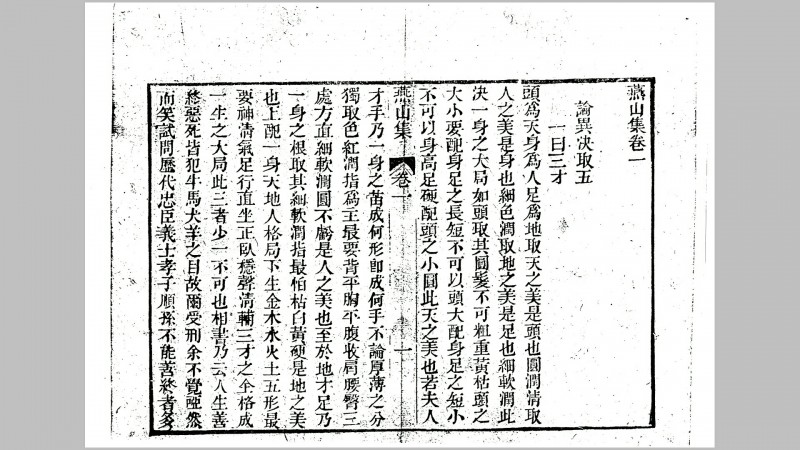 燕山集卷一
論異決取五
一曰三才
頭爲天身爲人足爲地取天之美是頭也圓潤清取
人之美是身也細色潤取地之美是足也細軟潤此
決一身之大局如頭取其圓髮不可粗重黃枯頭之
大小要配身足之長短不可以頭大配身足之短小
不可以身高足硬配頭之小圓此天之美也若夫人
燕山集 卷一 一
才手乃一身之苗成何形卽成何手不論厚薄之分
獨取色紅潤指爲主最要背平胸平腹收肩腰臀三
處方直細軟潤圓不虧是人之美也至於地才足乃
一身之根取其細軟潤指最怕枯白黃硬是地之美
也上配一身天地人格局下生金木水火土五形最
要神清氣足行直坐正臥穩聲清輔三才之全格成
一生之大局此三者少一不可也相書乃云人生善
終惡死皆犯牛馬犬羊之目故爾受刑余不覺啞然
而笑試問歷代忠臣義士孝子順孫不能善終者多